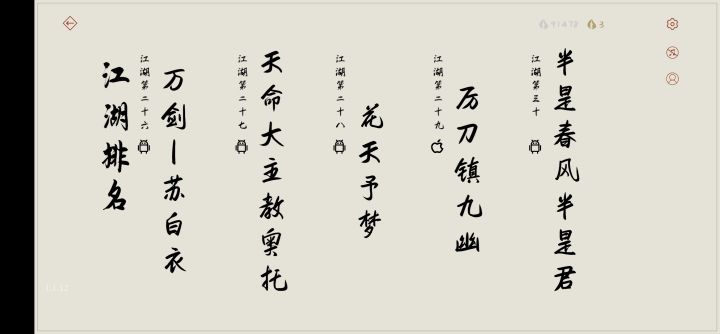 江湖排名
江湖第二十六
万剑丨苏白衣
江湖第二十七
天命大主教奥托
江湖第二十八
花天予梦
江湖第二十九
厉刀镇九幽
江湖第三十
半是春风半是君
3
1.1.12